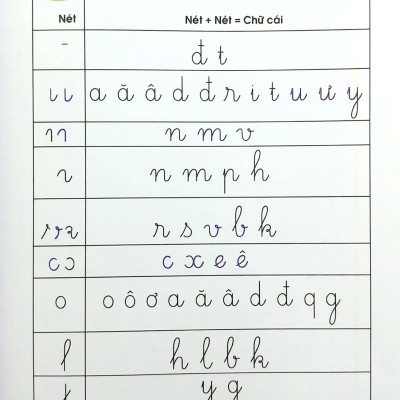 Nét Nét + Nét = Chữ cái
- đ t
a ă â d đ r i t u ư y
n m v
n m p h
r s v b k
c x e ê
o o ô ơ a ă â d đ q g
l h l b k
y g